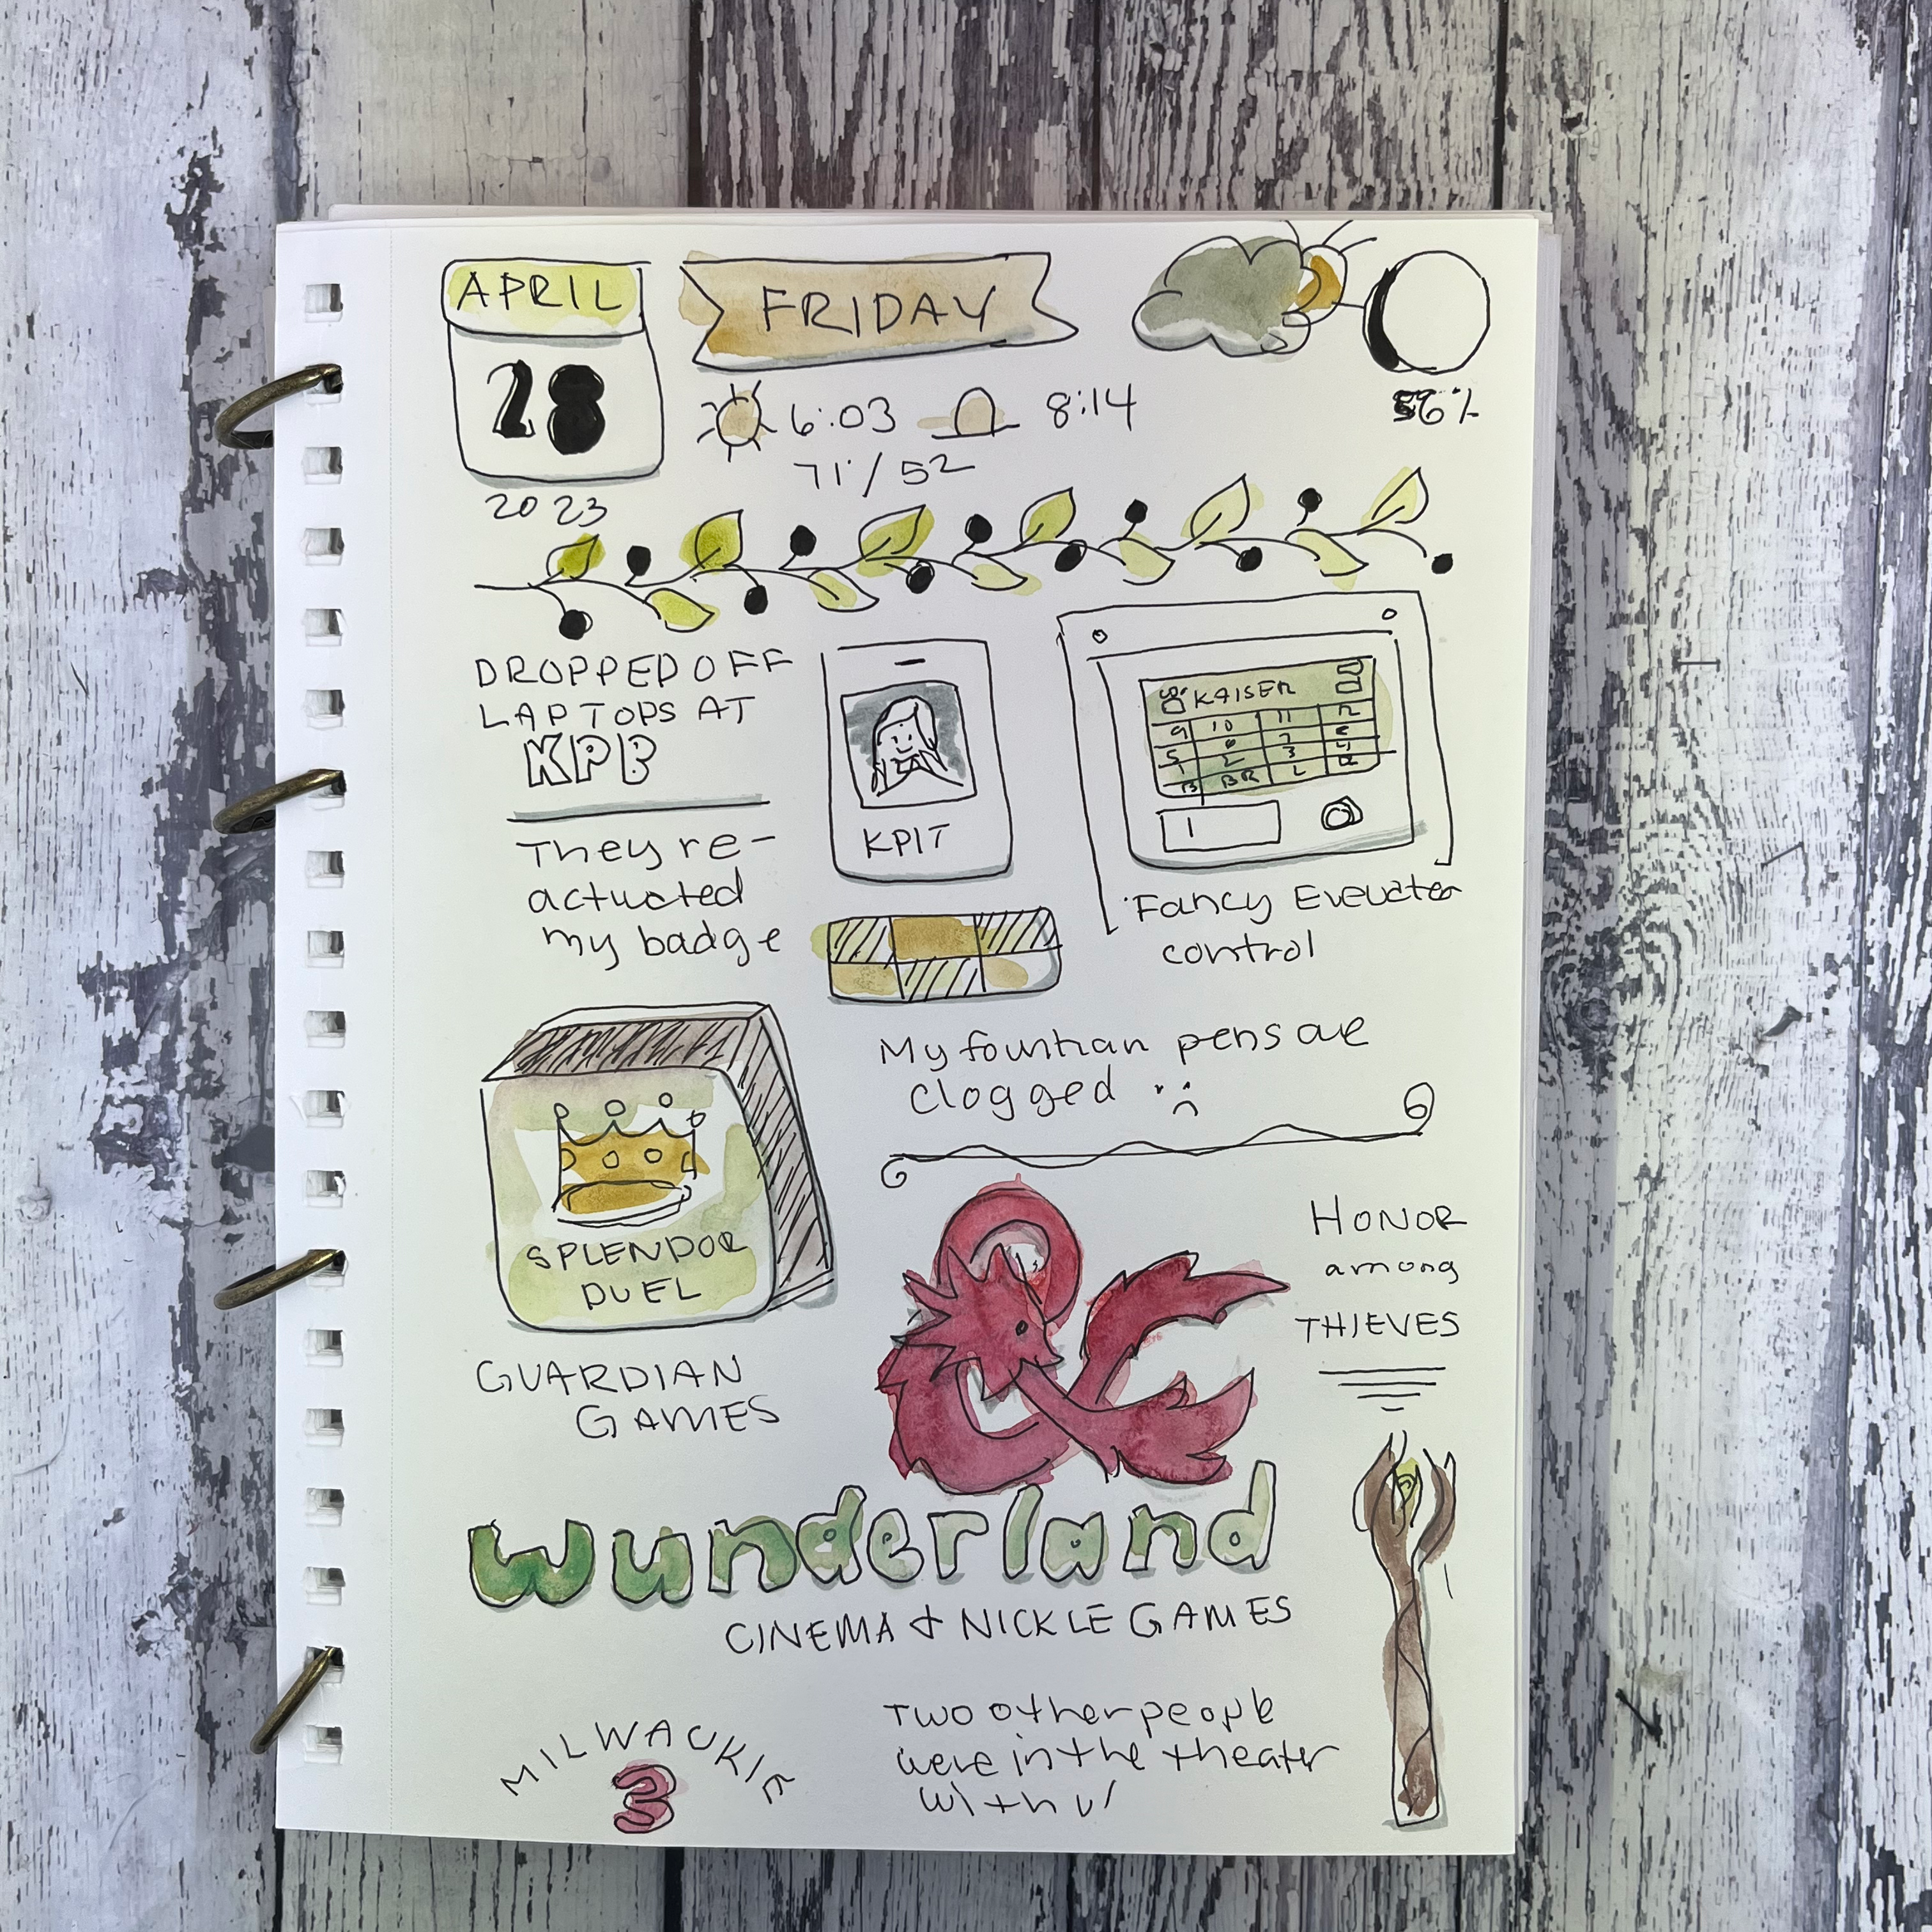 APRIL
28
2023
FRIDAY
6:03 8:14
71/52
56%
DROPPED OFF
LAPTOPS AT
KPB
They re-
actuated
my badge
KPIT
KAISER
9 10 11 12
5 6 7 8
1 2 3 4
B BR L R
1
Fancy Evevater
control
My fountian pens are
clogged :(
SPLENDOR
DUEL
GUARDIAN
GAMES
HONOR
among
THIEVES
&
wunderland
CINEMA & NICKLE GAMES
MILWAUKIE
3
Two other people
were in the theater
with u/